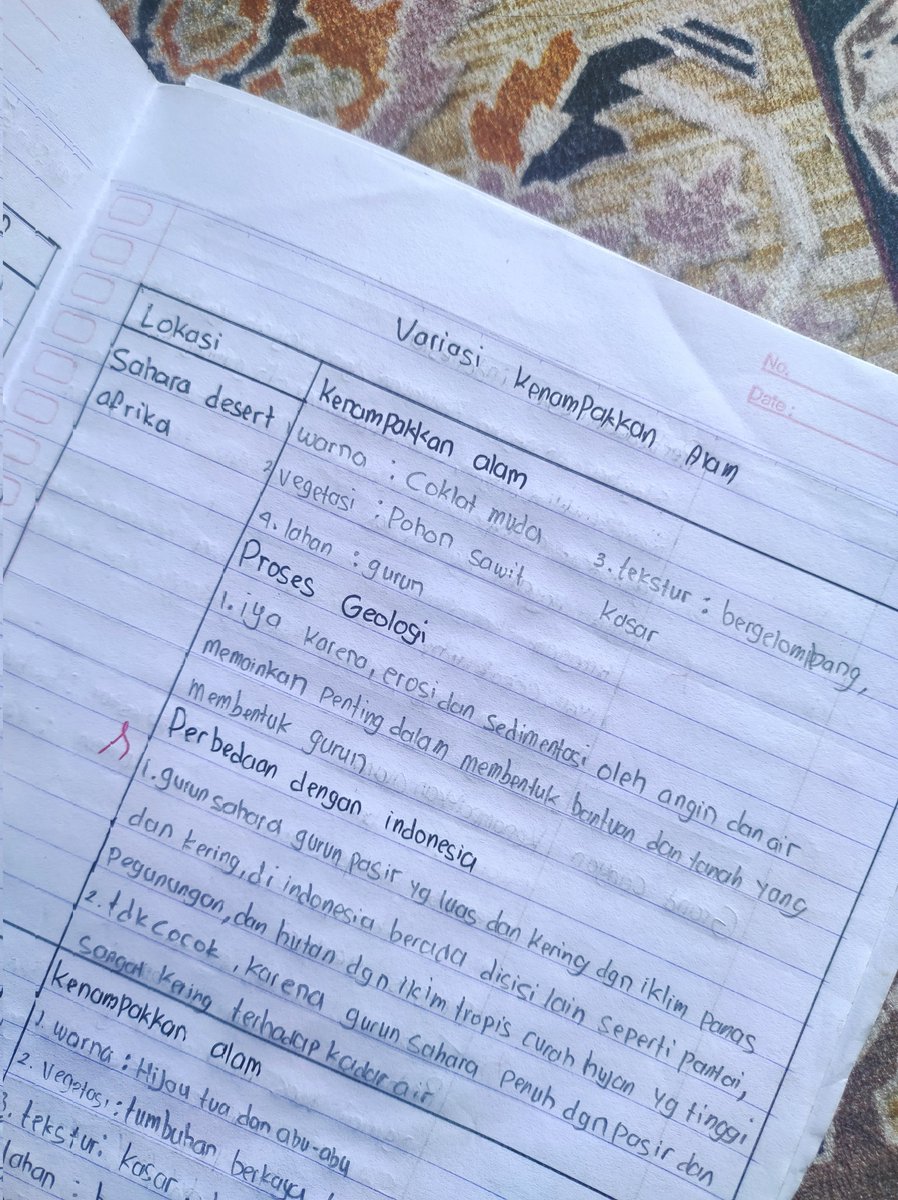 No.
Date:
Variasi Kenampakkan Alam
Lokasi
Kenampakkan alam
Sahara desert
afrika
1 warna : Coklat muda 3. tekstur : bergelombang,
2 Vegetasi : Pohon sawit kasar
4. lahan : gurun
Proses Geologi
1. iya karena, erosi dan sedimentasi oleh angin dan air
memainkan penting dalam membentuk bantuan dan tanah yang
membentuk gurun
Perbedaan dengan indonesia
1. gurun sahara gurun pasir yg luas dan kering dgn iklim panas
dan kering, di indonesia berada disisi lain seperti pantai,
pegunungan, dan hutan dgn iklim tropis curah hujan yg tinggi
2. tdk cocok, karena gurun sahara penuh dgn pasir dan
sangat kering terhadap kadar air
Kenampakkan alam
1. warna : Hijau tua dan abu-abu
2. vegetasi : tumbuhan berkayu
3. tekstur : kasar
lahan :